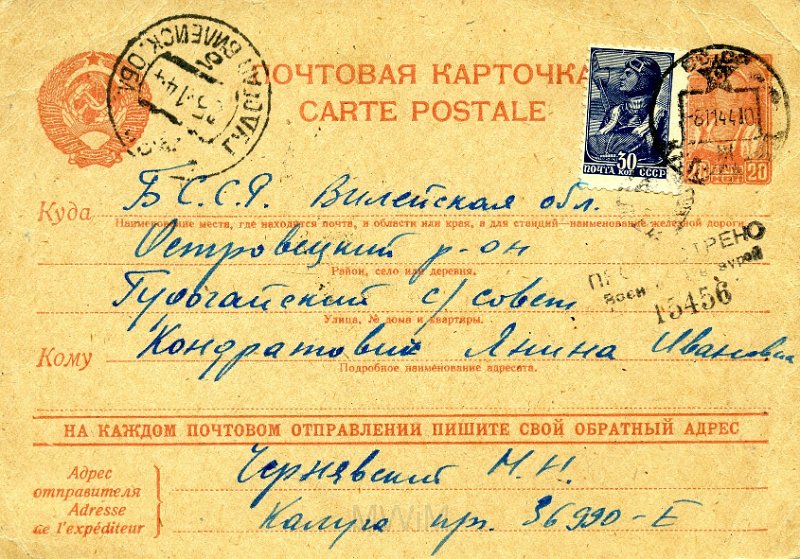 ПОЧТОВАЯ КАРТОЧКА
CARTE POSTALE
ВИЛЕЙСК. ОБЛ.
ПОЧТА 30 КОП СССР
-6 11 44 10
20
Куда Б.С.С.Р. Вилейская обл.
Наименование места, где находится почта, в области или края, а для станций—наименование железной дороги
Островецкий р-он
Район, село или деревня.
Гудогайский с/совет
Улица, № дома и квартиры.
Кому Кондратович Янина Ивановна
Подробное наименование адресата.
15456
НА КАЖДОМ ПОЧТОВОМ ОТПРАВЛЕНИИ ПИШИТЕ СВОЙ ОБРАТНЫЙ АДРЕС
Адрес
отправителя
Adresse
de l'expéditeur
Чернявский М.Н.
Калуга пр. 36990-Е
MWiM